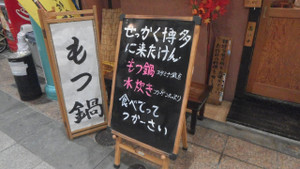 もつ鍋
せっかく博多
に来たけん
もつ鍋
水炊き
食べてって
つかーさい